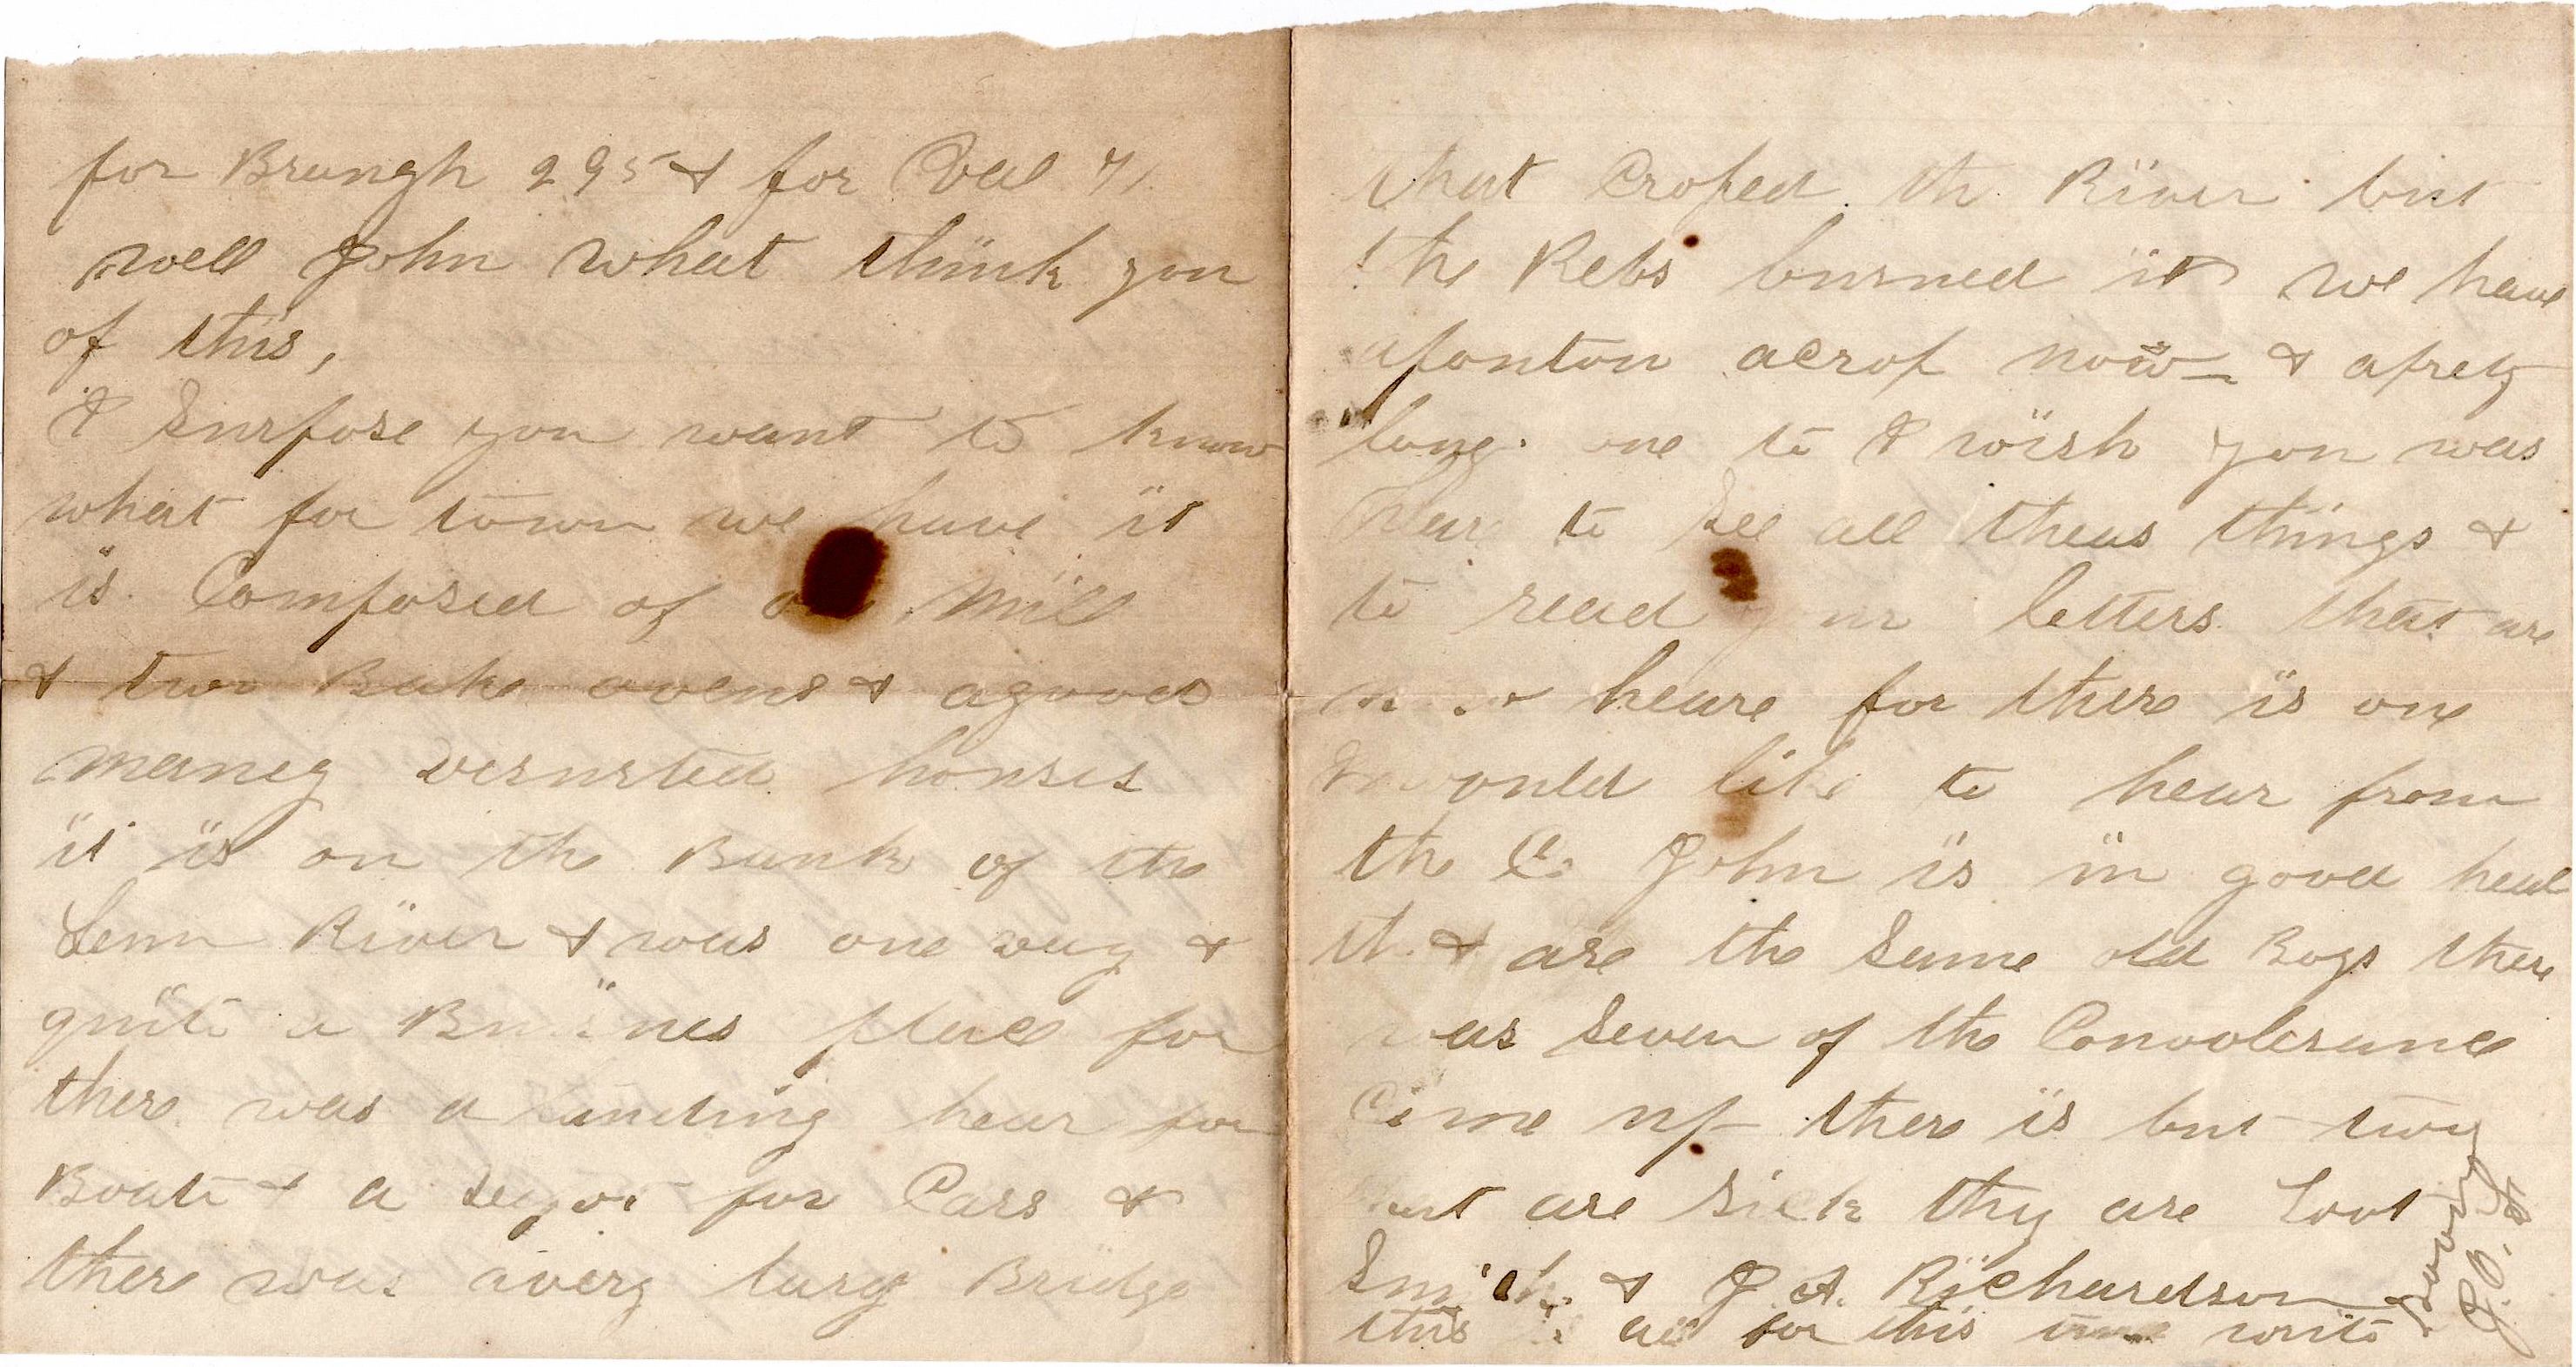 for Brungh 295 & for Val 71
well John what think you
of this,
I Surpose you want to know
what for town we have it
is Composed of Mill
& two Bake ovens & agood
maney desurted houses
it is on the Bank of the
Tenn River & was one day &
quite a place for
there was a landing hear for
Boats & a for Cars &
there was avery larg Bridge
that Crosed the River but
the Rebs burned it we have
aponton acros now & aprety
long one to I wish you was
hear to See all theas things &
to read your letters that are
heare for there is one
would like to hear from
the Co John is in good heal
th & are the Same old Boys there
was Seven of the Convolesance
Come up there is but twoy
that are Sick thy are
Smith & J. A. Richardson
this is all for this time write
soon
J. O. S